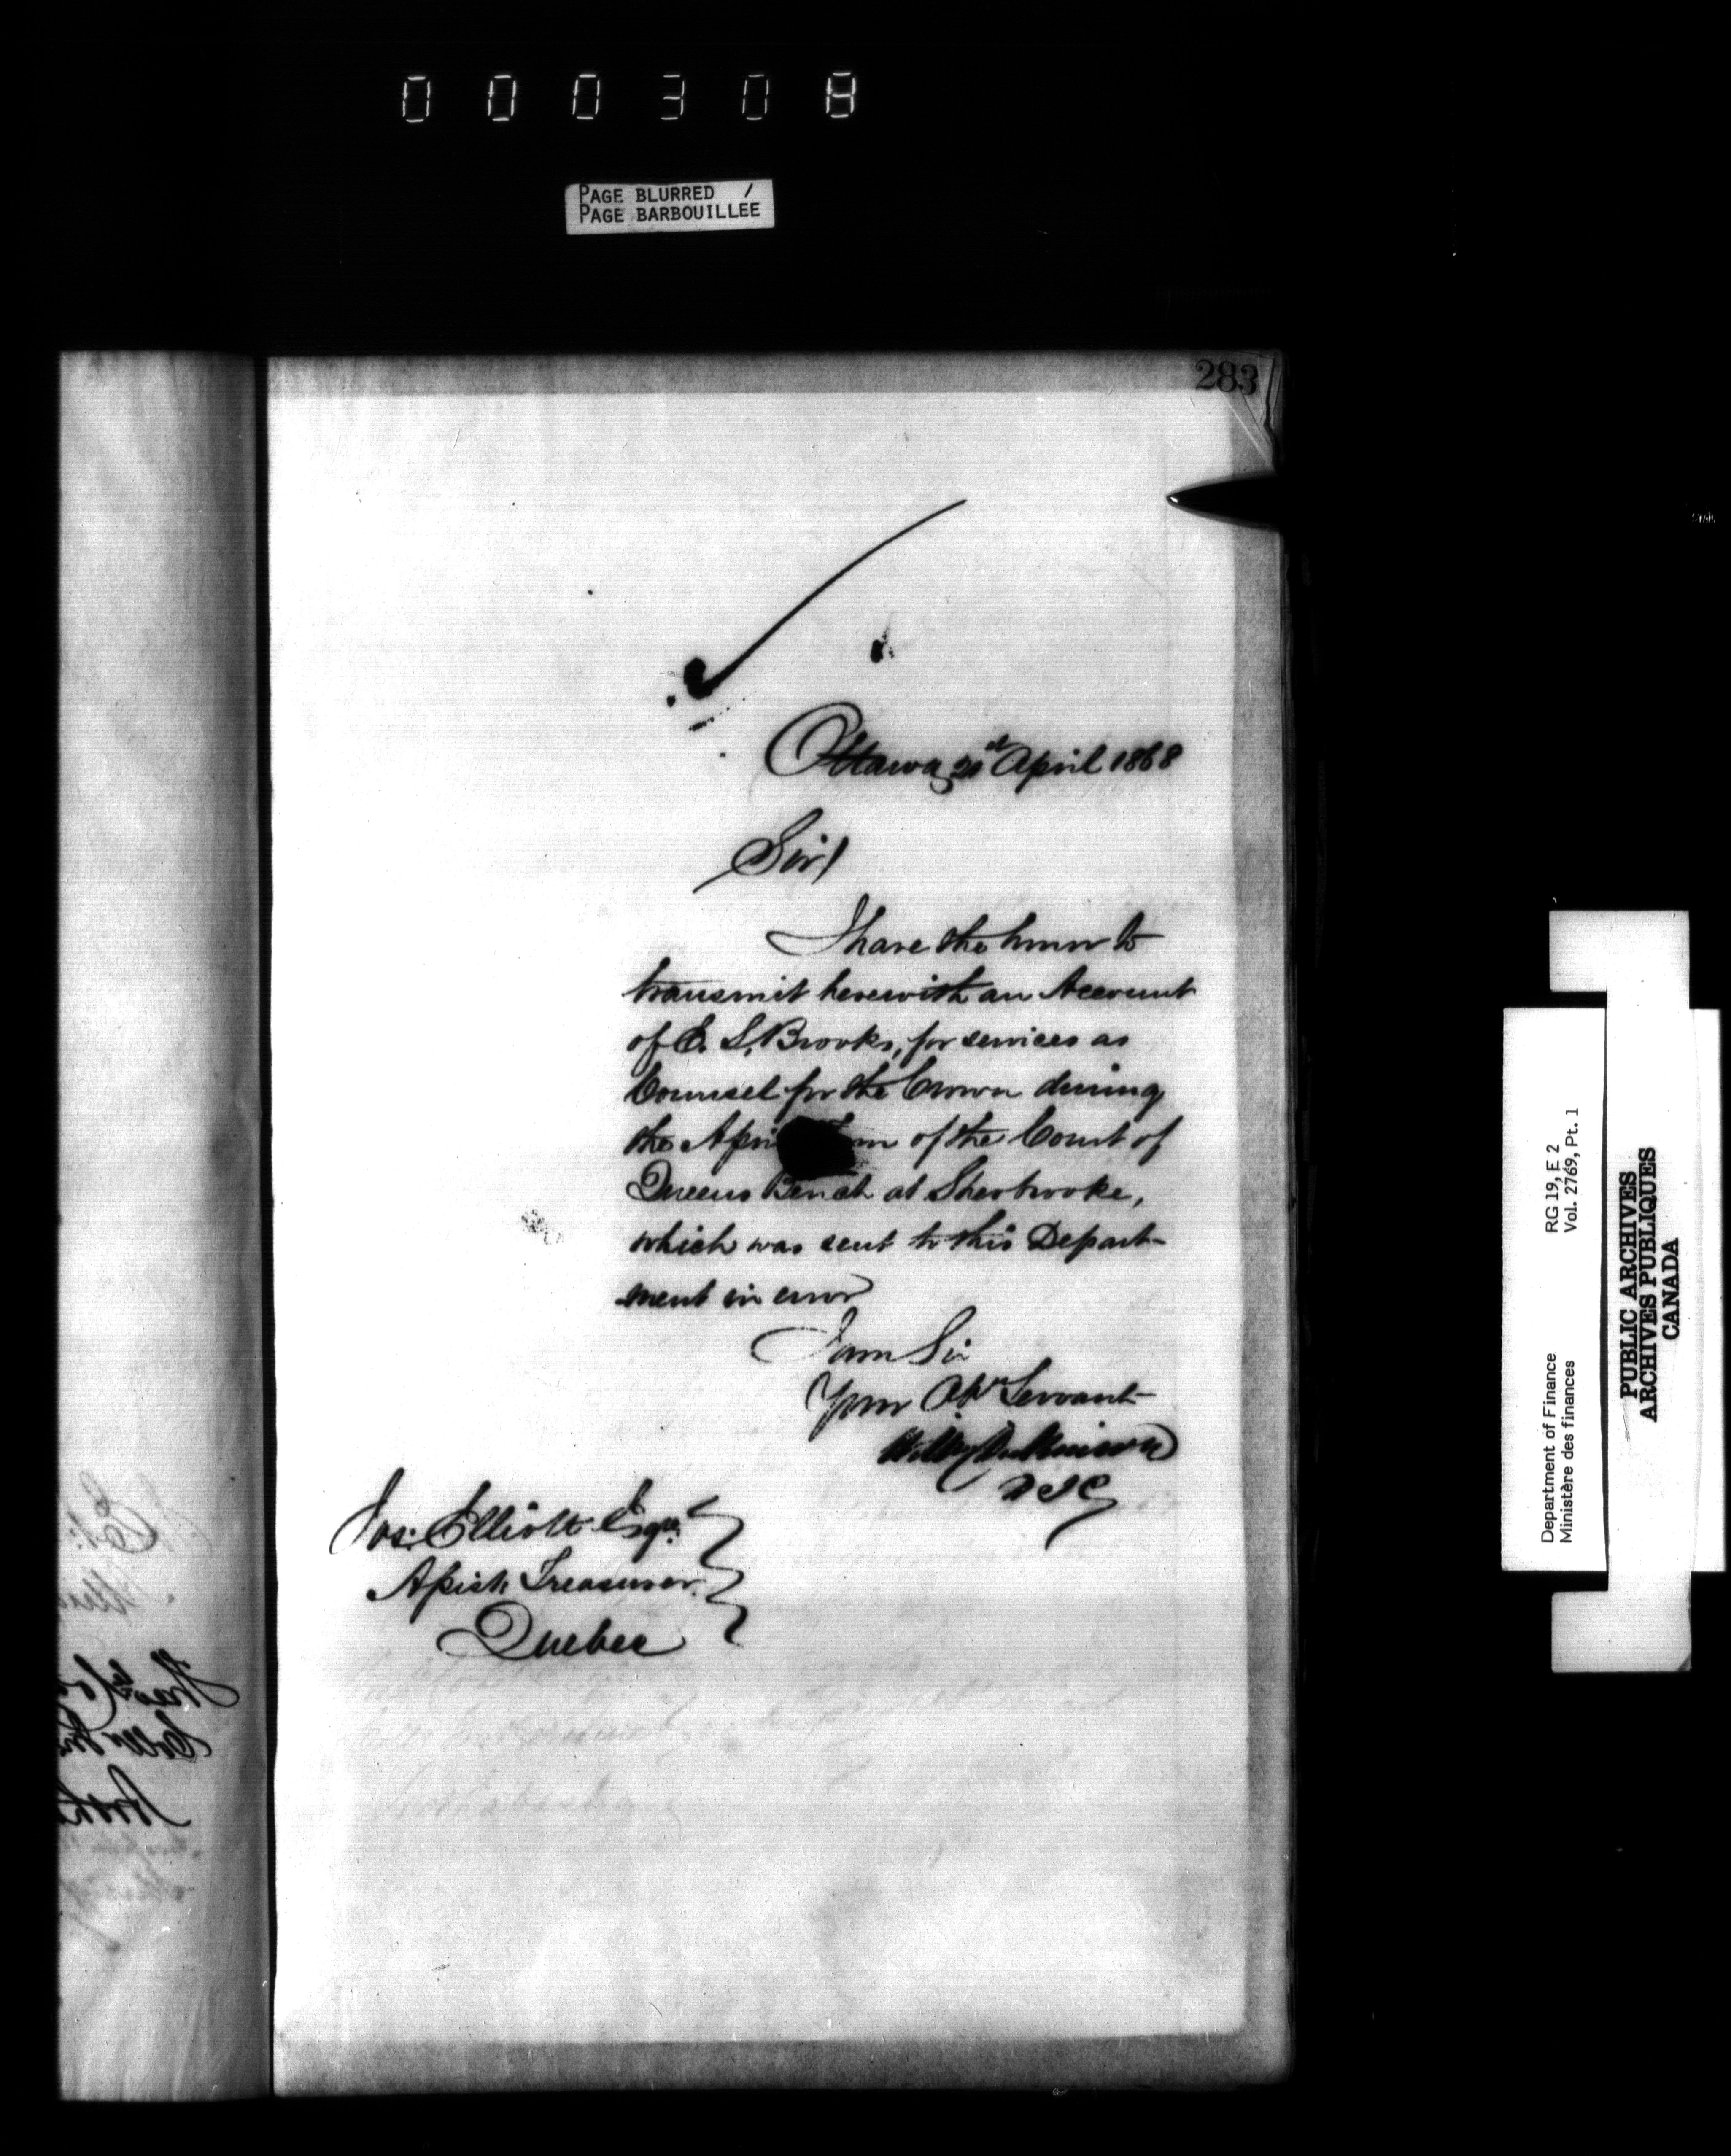 000308
PAGE BLURRED /
PAGE BARBOUILLÉE
283
Ottawa 21st April 1868
Sir/
I have the honor to
transmit herewith an Account
of E. S. Brooks, for services as
Counsel for the Crown during
the April of the Court of
Queens Bench at Sherbrooke,
which was sent to this Depart-
ment in error
I am Sir
Your Obt Servant
Jos: Elliott Esqre
Assist Treasurer
Quebec
Department of Finance RG 19, E 2
Ministère des finances Vol. 2769, Pt. 1
PUBLIC ARCHIVES
ARCHIVES PUBLIQUES
CANADA